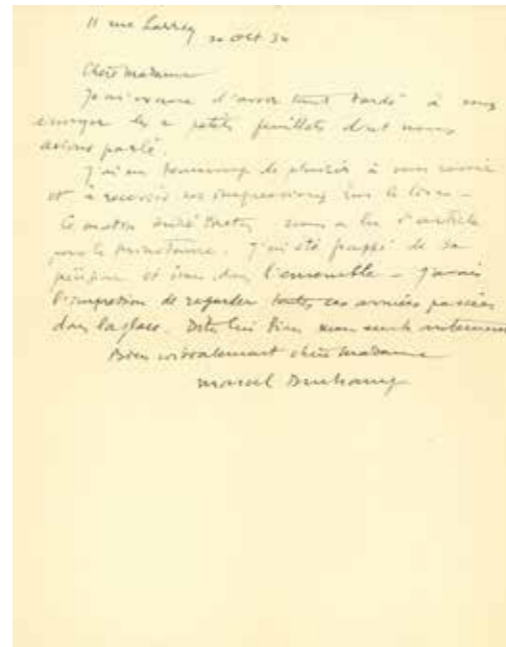 11 rue Larrey 20 Oct 34
Chère Madame
Je m'excuse d'avoir tant tardé à vous
envoyer les 2 petits feuillets dont nous
avions parlé.
J'ai eu beaucoup de plaisir à vous revoir
et à recevoir vos impressions sur le livre —
Ce matin André Breton nous a lu l'article
pour le Minotaure. J'ai été frappé de sa
et dans l'ensemble — j'avais
l'impression de regarder toutes ces années passées
dans la glace. Dites lui bien mon
Bien cordialement chère Madame
Marcel Duchamp